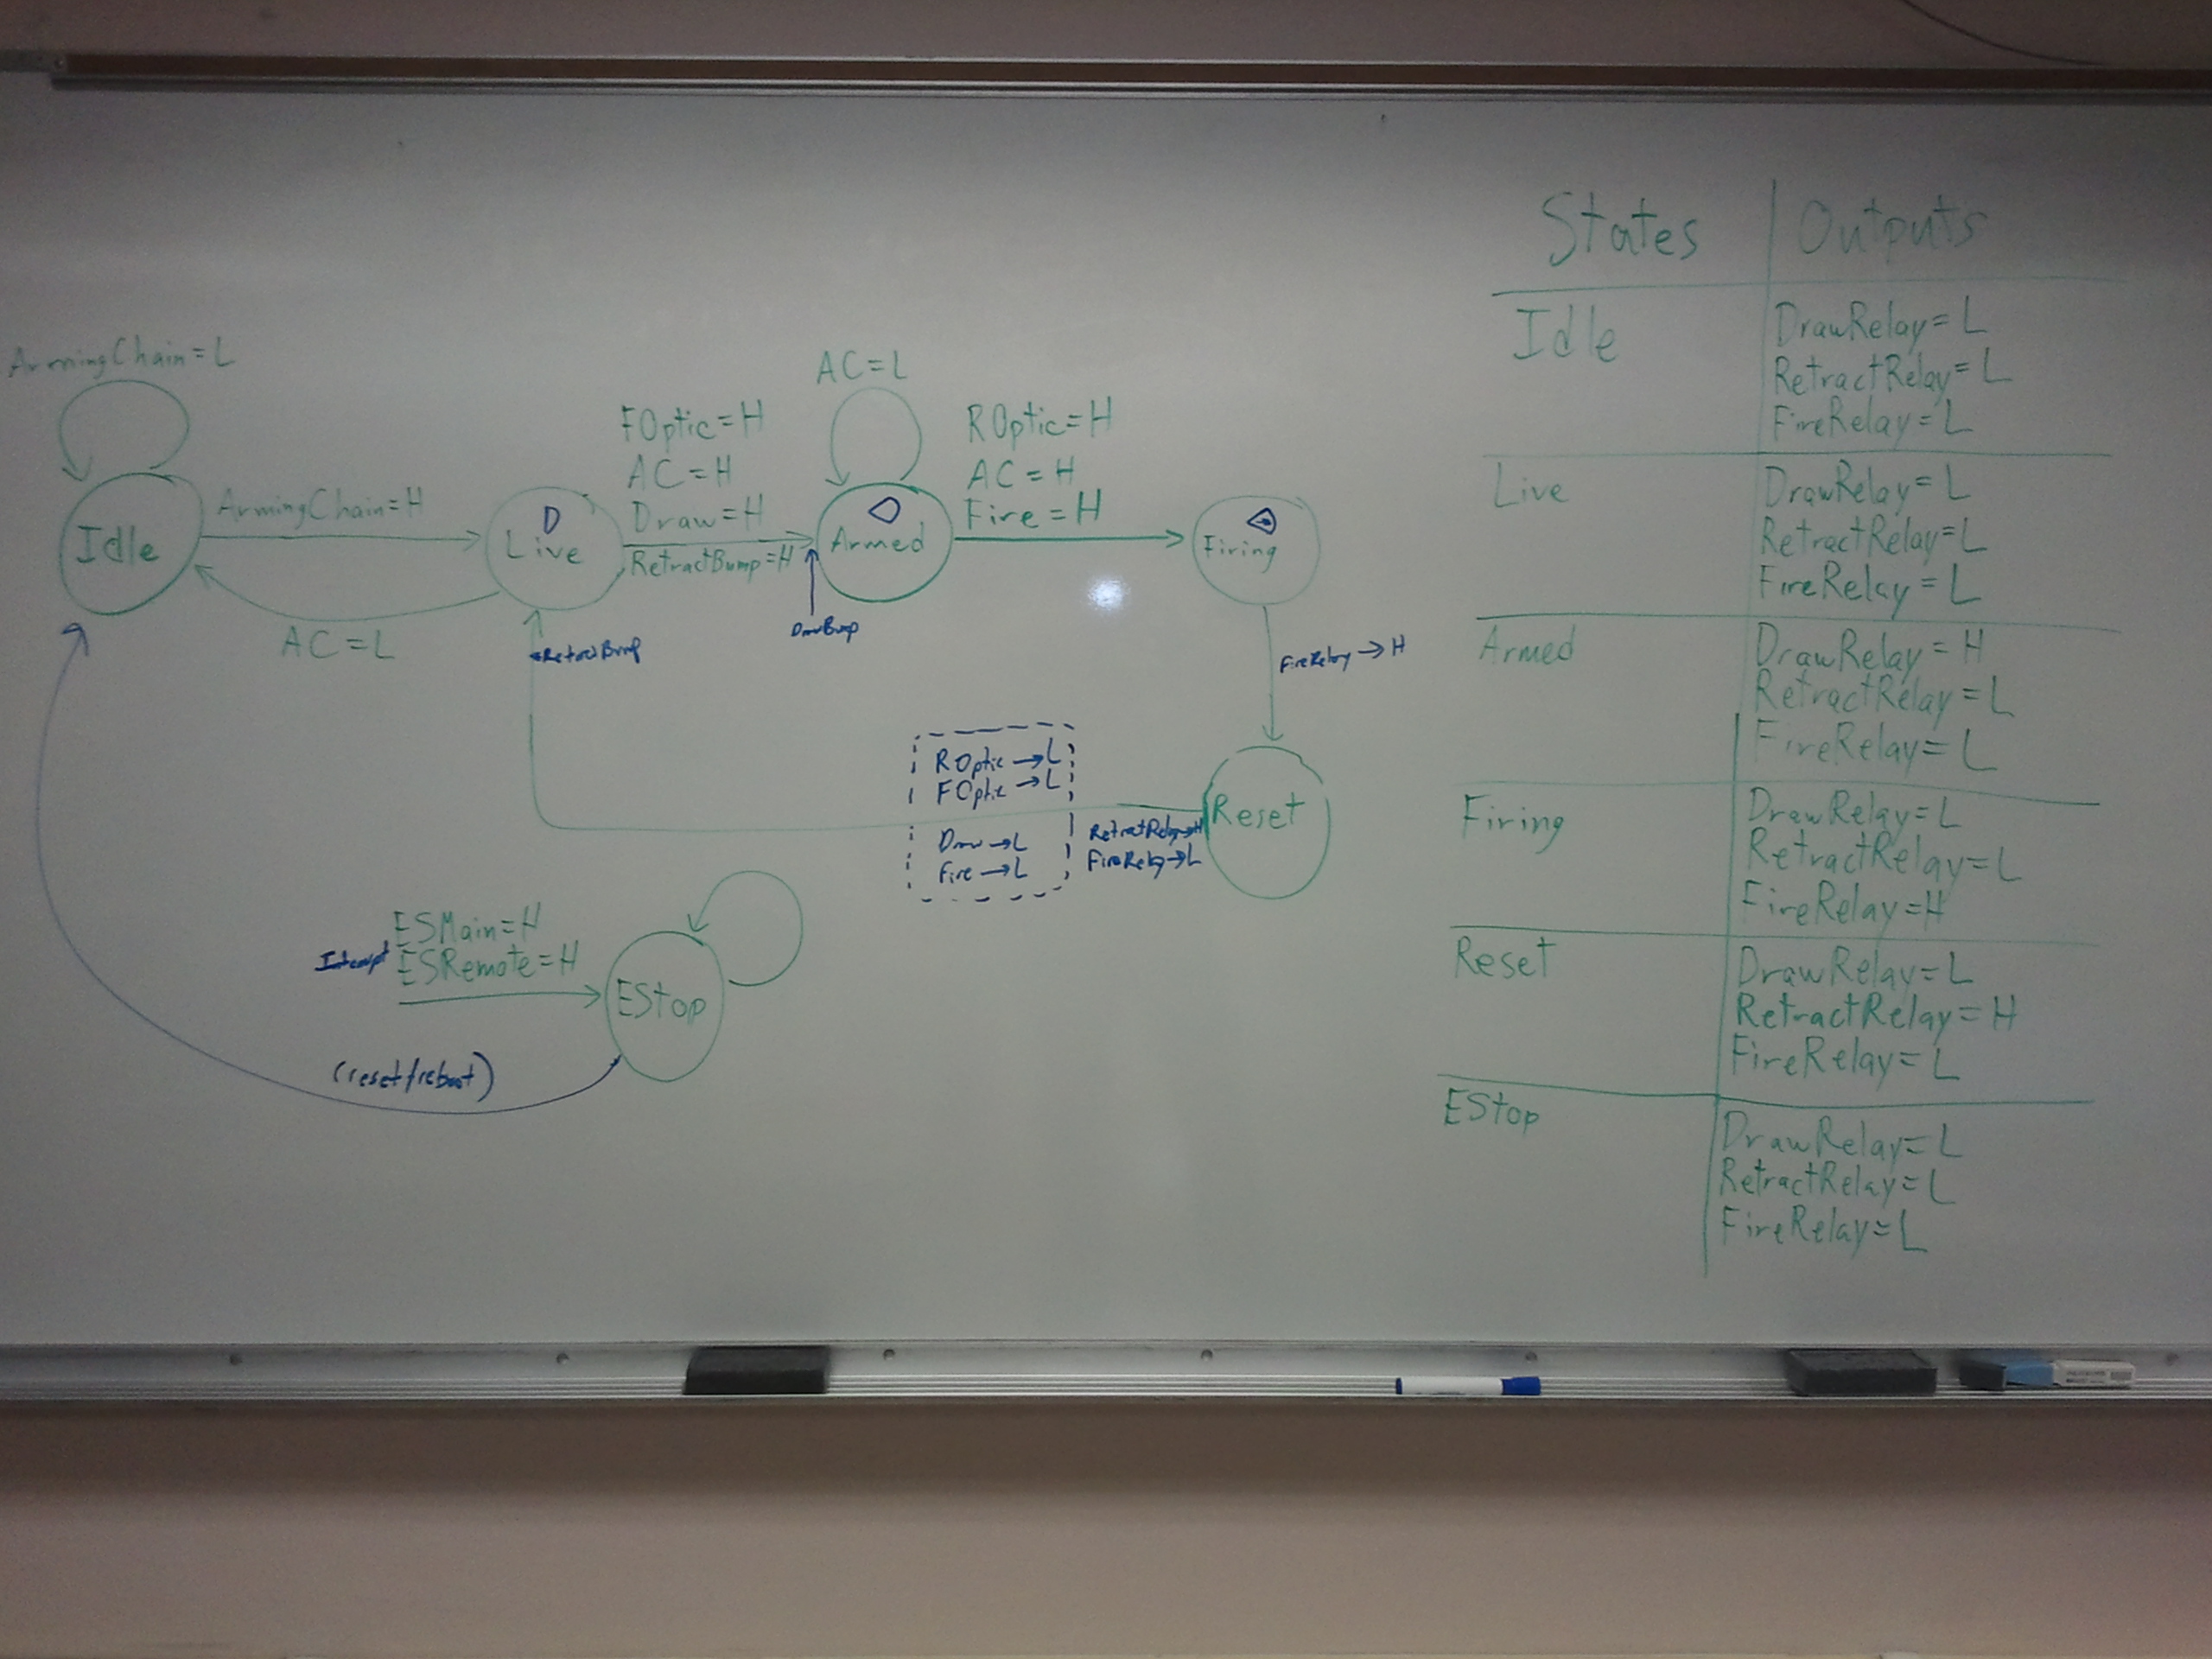 ArmingChain=L
Idle
ArmingChain=H
AC=L
D
Live
FOptic=H
AC=H
Draw=H
RetractBump=H
DrawBump
RetractBump
AC=L
Armed
ROptic=H
AC=H
Fire=H
Firing
FireRelay→H
Reset
RetractRelay→H
FireRelay→L
ROptic→L
FOptic→L
Draw→L
Fire→L
ESMain=H
ESRemote=H
EStop
(reset/reboot)
States | Outputs
Idle
DrawRelay=L
RetractRelay=L
FireRelay=L
Live
DrawRelay=L
RetractRelay=L
FireRelay=L
Armed
DrawRelay=H
RetractRelay=L
FireRelay=L
Firing
DrawRelay=L
RetractRelay=L
FireRelay=H
Reset
DrawRelay=L
RetractRelay=H
FireRelay=L
EStop
DrawRelay=L
RetractRelay=L
FireRelay=L